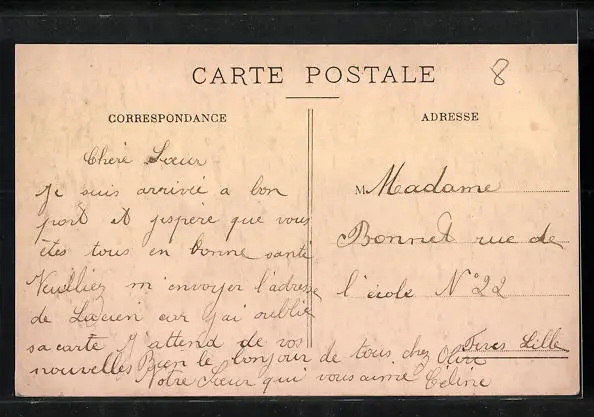 CARTE POSTALE
8
CORRESPONDANCE
Cheré Sœur
Je suis arrivée a bon
port et jespère que vous
êtes tous en bonne santé
Veuilliez m'envoyer l'adresse
de Lucien car j'ai oublié
sa carte J'attend de vos
nouvelles Bien le bonjour de tous chez
Votre Sœur qui vous aime Céline
ADRESSE
M Madame
Bonnet rue de
l'école N°22
Fives Lille